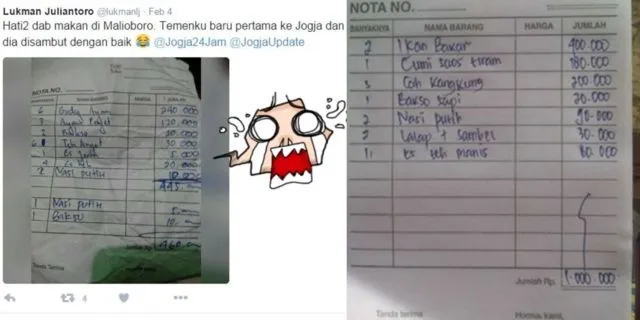 Lukman Juliantoro @lukmanlj · Feb 4
Hati2 dab makan di Malioboro. Temenku baru pertama ke Jogja dan
dia disambut dengan baik 😂 @Jogja24Jam @JogjaUpdate
NOTA NO.
BANYAKNYA NAMA BARANG HARGA JUMLAH
6 240.000
Bakso
5.000
20.000
2 Nasi putih 10.000
445.000
1 Nasi putih 5.000
1 Bakso 10.000
460.000
Tanda Terima
4
NOTA NO.
BANYAKNYA NAMA BARANG HARGA JUMLAH
2 Ikan Bakar 400.000
1 Cumi saos tiram 180.000
3 Cah Kangkung 200.000
1 Bakso sapi 20.000
2 Nasi putih 90.000
2 Lalap + sambel 30.000
11 es teh manis 80.000
Jumlah Rp. 1.000.000
Tanda terima Hormat kami,